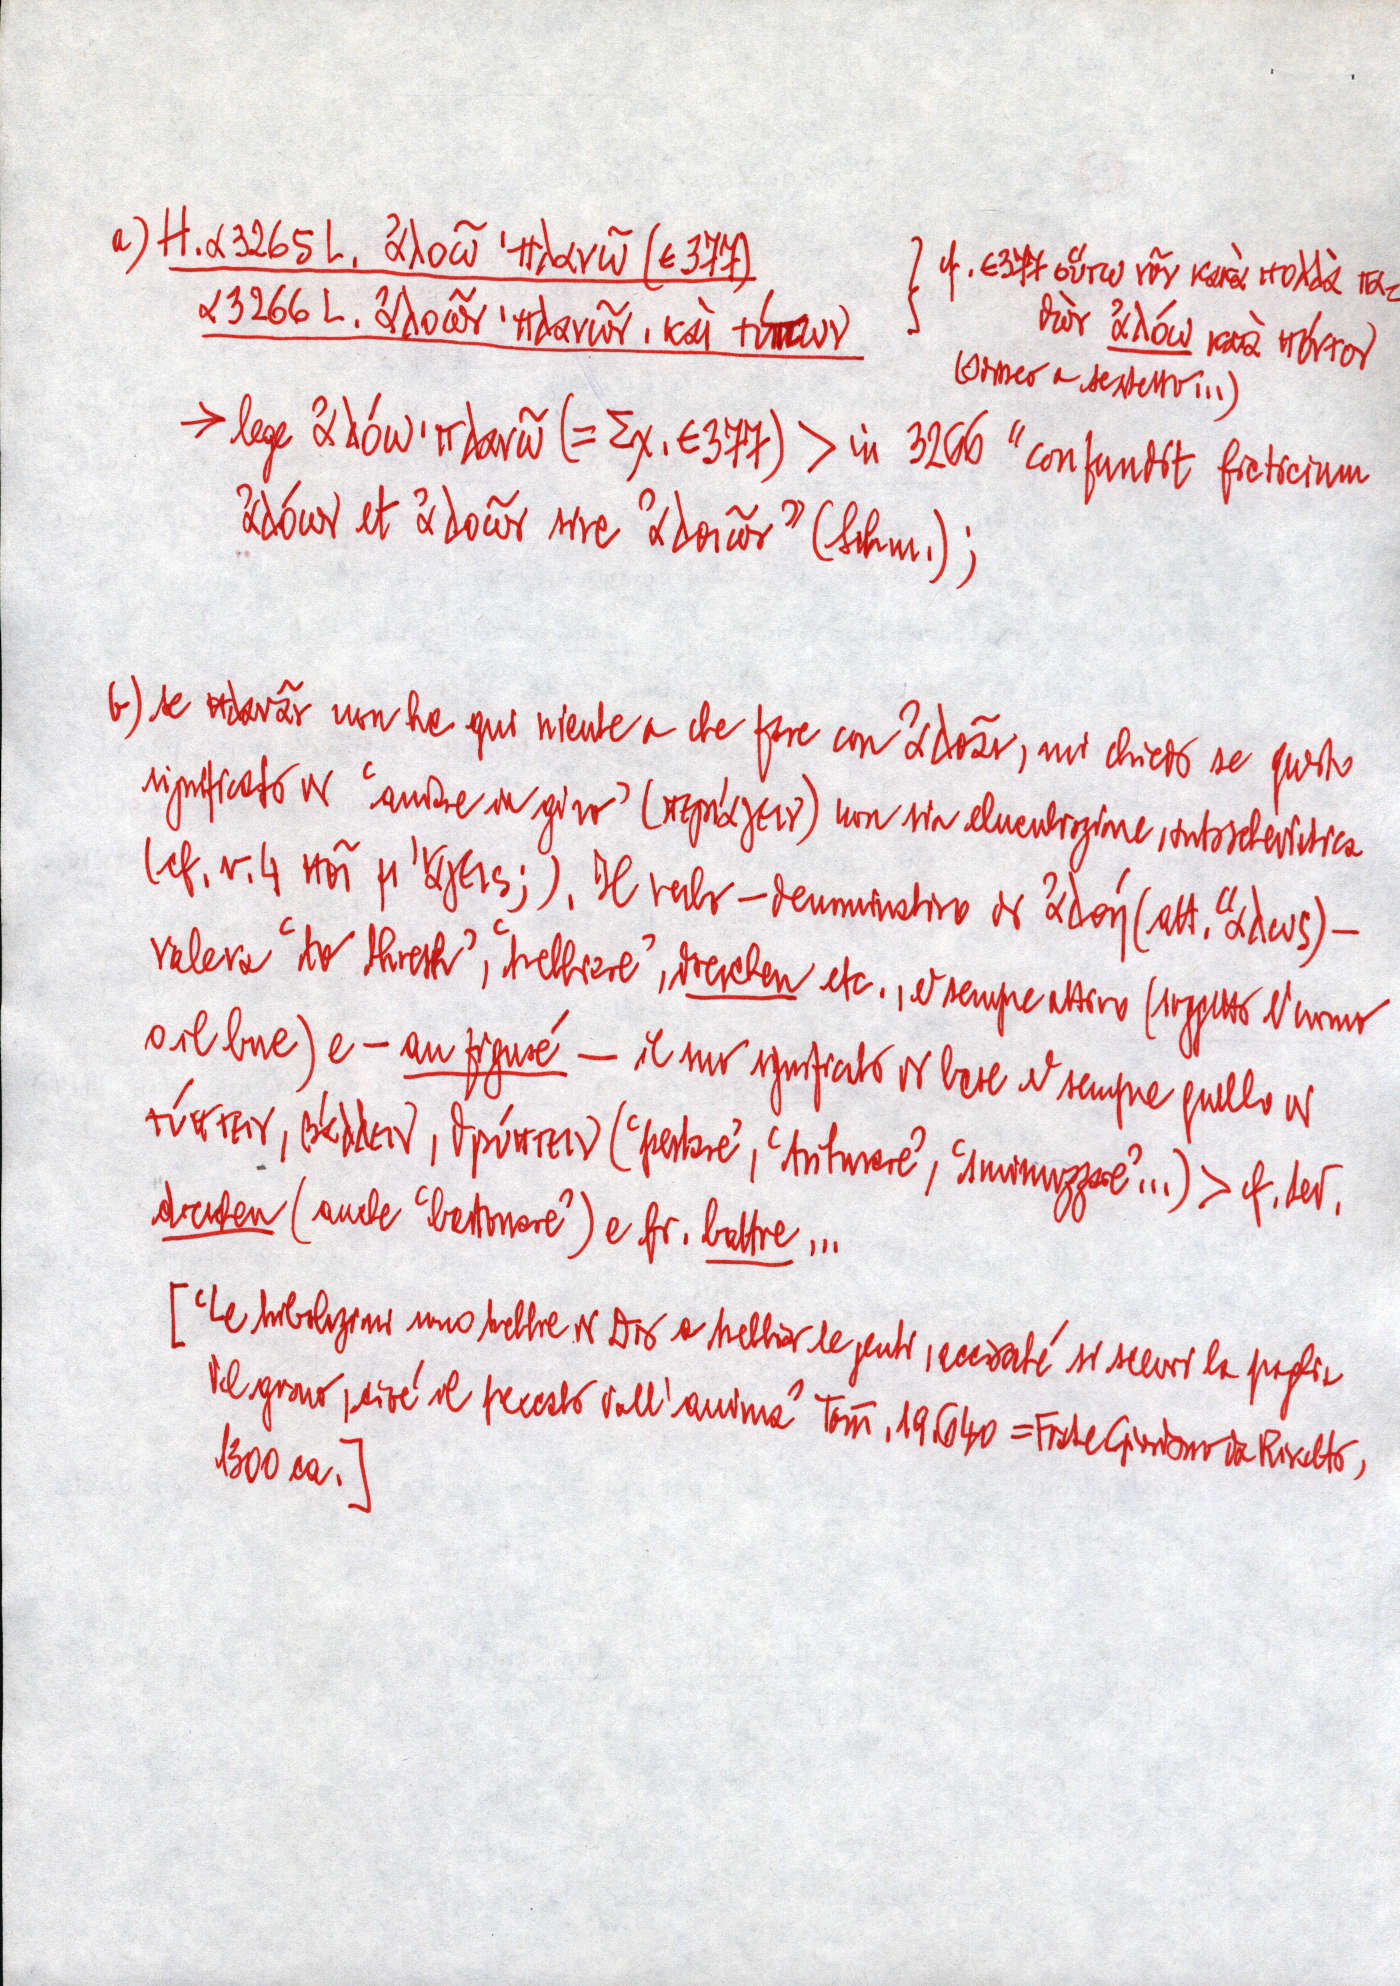 a) H. α 3265 L. ἀλοῶ· πλανῶ (ε 377)
α 3266 L. ἀλοῶν· πλανῶν. καὶ τύπτων
} cf. ε 377 οὕτω νῦν κακὰ πολλὰ πα-
θὼν ἀλόω κατὰ πόντον
→ lege ἀλόω· πλανῶ (= Σχ. ε 377) > in 3266 “confundit ficticium
ἀλόων et ἀλοῶν sive ἀλοιῶν” (Schm.);
b) se πλανᾶν non ha qui niente a che fare con ἀλοᾶν, mi chiedo se questo
significato di ‘andare in giro’ (περιάγειν) non sia elucubrazione autoschediastica
(cf. v. 4 ποῖ μ' ἄγεις;). Il verbo – denominativo di ἀλωή (att. ἅλως) –
valeva ‘to thresh’, ‘trebbiare’, dreschen etc., è sempre attivo (soggetto l'uomo
o il bue) e – au figuré – il suo significato di base è sempre quello di
τύπτειν, βάλλειν, θρύπτειν (‘pestare’, ‘triturare’, ‘sminuzzare’...) > cf. ted.
dreschen (anche ‘bastonare’) e fr. battre ...
[‘Le tribolazioni sono trebbie di Dio a trebbiar le genti, acciocché si scevri la paglia
dal grano, cioè il peccato dall'anima’ Tomm. 19.640 = Frate Giordano da Rivalto,
1300 ca.]